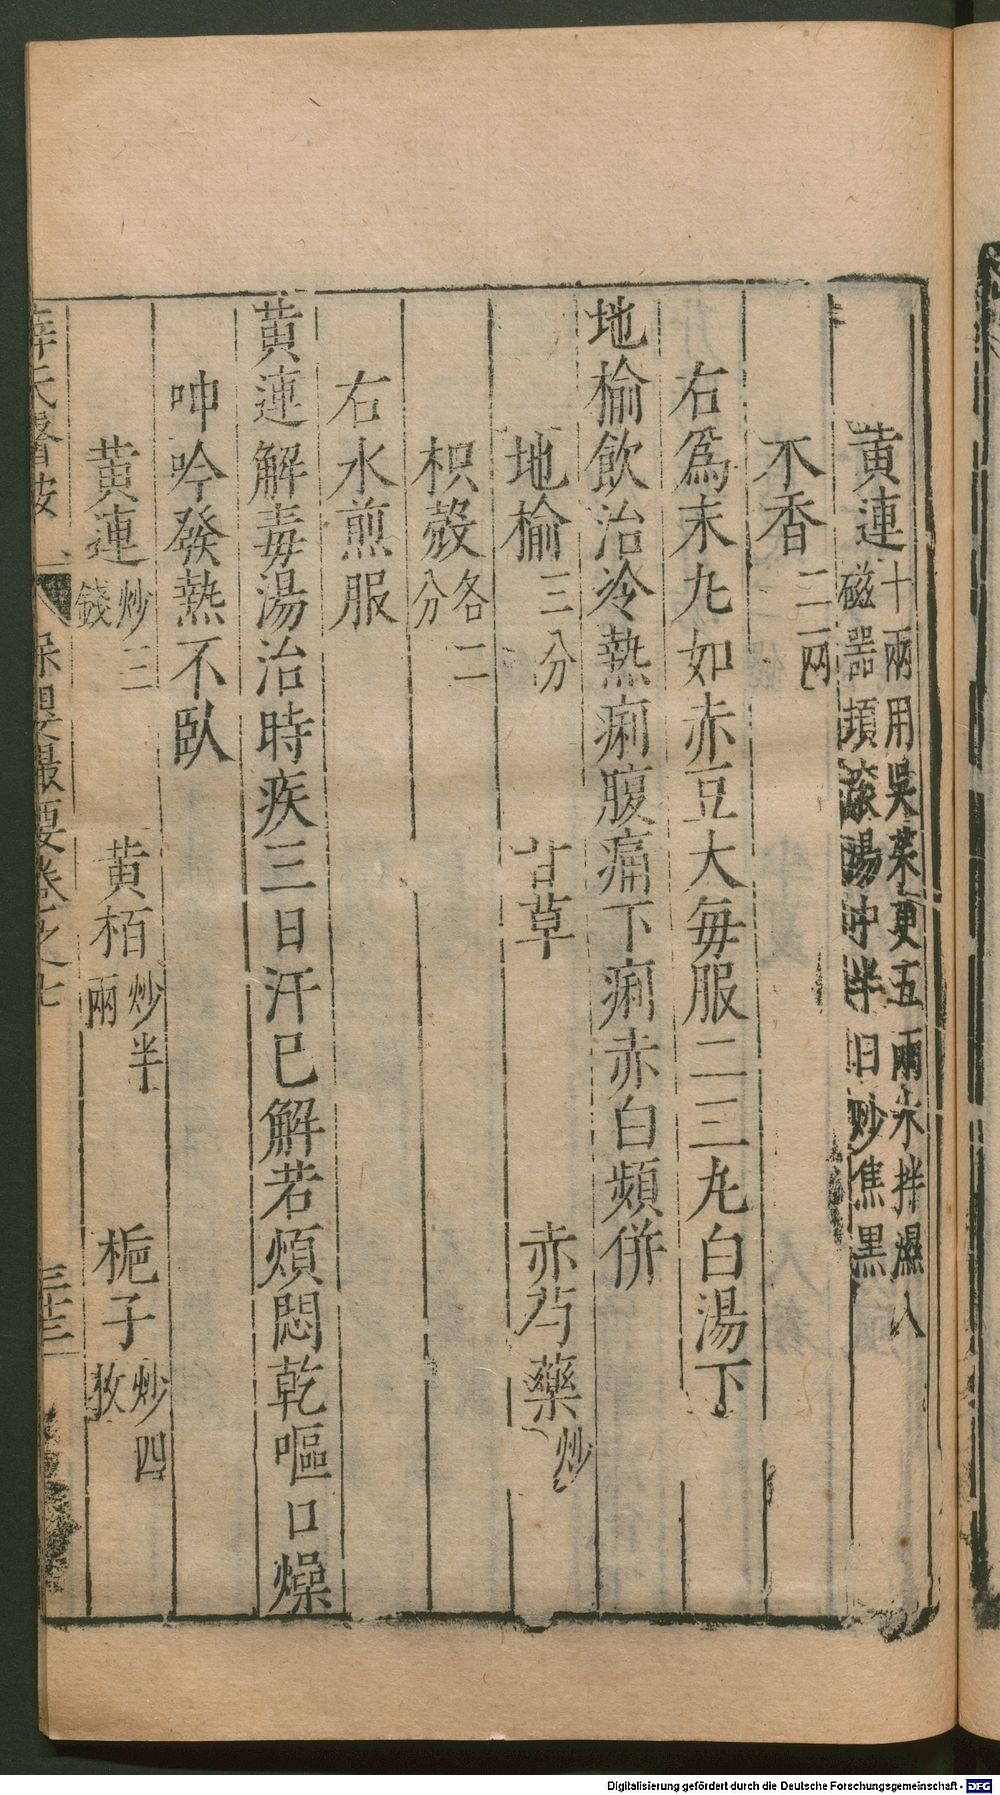 黄連十兩用吳茱萸五兩水拌濕入磁器頓滾湯中半日炒焦黑
木香二兩
右爲末丸如赤豆大每服二三丸白湯下
地榆飲治冷熱痢腹痛下痢赤白頻併
地榆三分 甘草 赤芍藥炒
枳殼各二分
右水煎服
黄連解毒湯治時疾三日汗已解若煩悶乾嘔口燥
呻吟發熱不臥
黄連炒三錢 黄栢炒半兩 梔子炒四枚
薛氏醫按 保嬰撮要卷之七 三十三
Digitalisierung gefördert durch die Deutsche Forschungsgemeinschaft - DFG